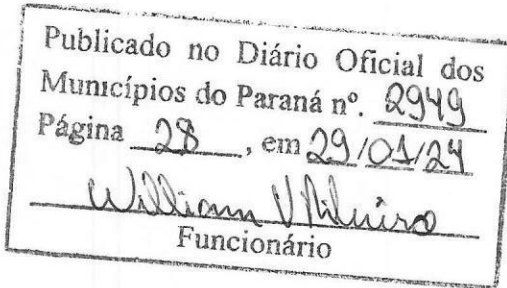 Publicado no Diário Oficial dos
Municípios do Paraná nº. 2949
Página 28, em 29/01/24
William V Ribeiro
Funcionário